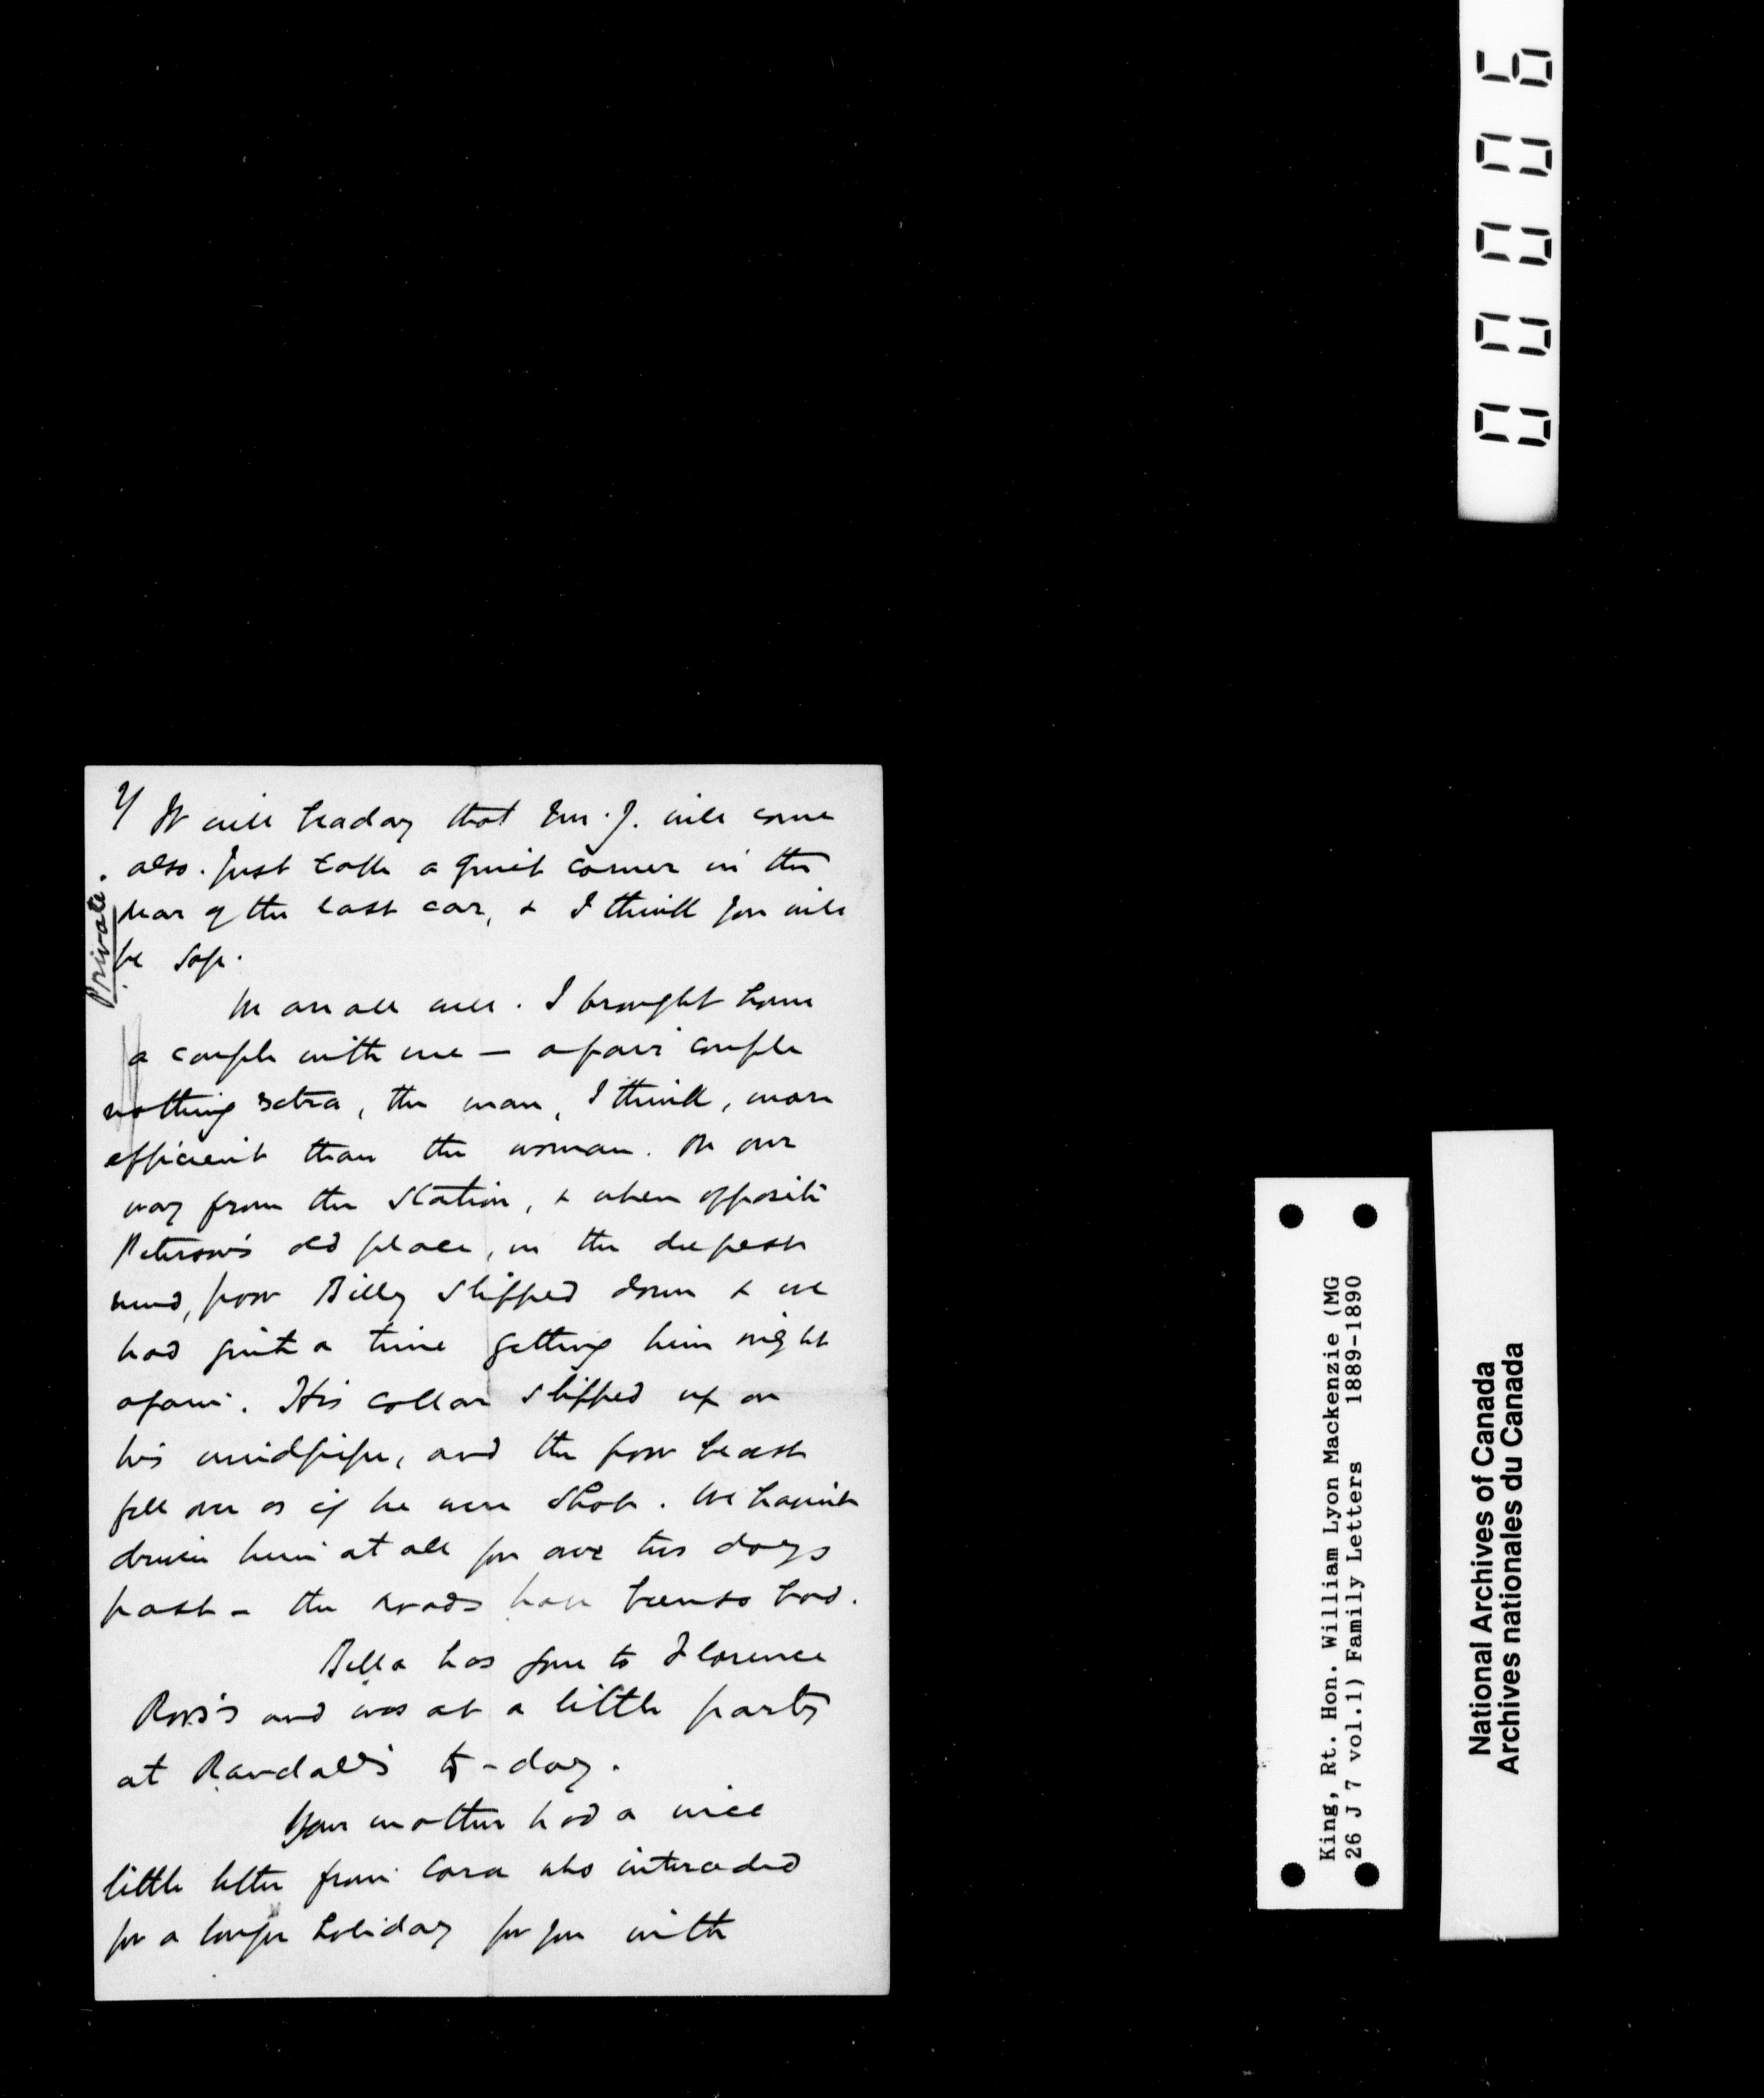 2/ It will be a day that Mr. J. will come
also. Just take a quiet corner in the
rear of the last car, & I think you will
be safe.
Private.
We are all well. I brought home
a couple with me — a fair couple
nothing extra, the man, I think, more
efficient than the woman. On our
way from the station, & when opposite
Peterson's old place, in the deepest
mud, poor Billy slipped down & we
had quite a time getting him right
again. His collar slipped up on
his windpipe, and the poor beast
fell over as if he were shot. We haven't
driven him at all for over two days
past – the roads have been so bad.
Bella has gone to Florence
Ross's and was at a little party
at Randall's to-day.
Your mother had a nice
little letter from Cora who interceded
for a longer holiday for you with
00006
King, Rt. Hon. William Lyon Mackenzie (MG
26 J 7 vol.1) Family Letters 1889-1890
National Archives of Canada
Archives nationales du Canada